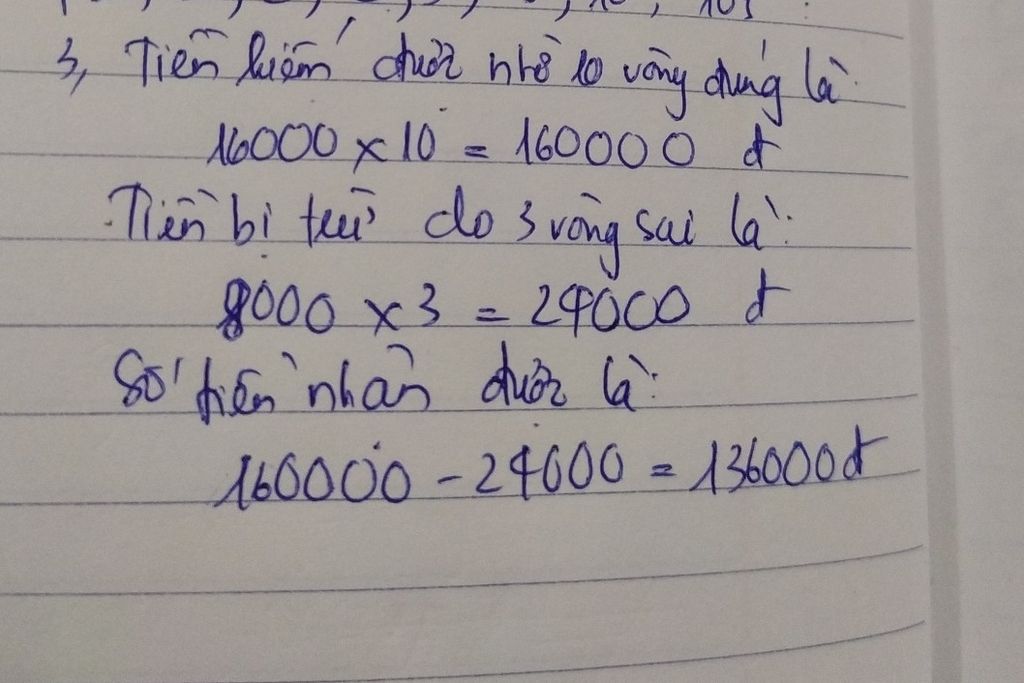 3, Tiền kiếm được nhờ 10 vòng đúng là:
16000 x 10 = 160000 đ
Tiền bị trừ do 3 vòng sai là:
8000 x 3 = 24000 đ
Số tiền nhận được là:
160000 - 24000 = 136000đ